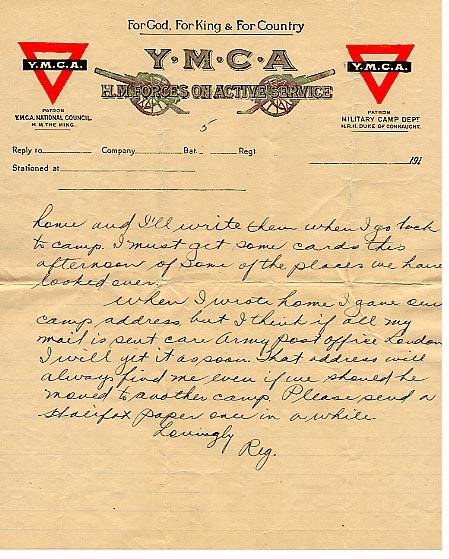 For God, For King & For Country
Y.M.C.A
H.M. FORCES ON ACTIVE SERVICE
Y.M.C.A.
PATRON
Y.M.C.A. NATIONAL COUNCIL.
H.M. THE KING.
Y.M.C.A.
PATRON
MILITARY CAMP DEPT
H.R.H. DUKE OF CONNAUGHT.
5
Reply to Company Bat. Regt
Stationed at 191
home and I'll write them when I go back
to camp. I must get some cards this
afternoon of some of the places we have
looked over.
When I wrote home I gave our
camp address but I think if all my
mail is sent care Army Post Office London
I will get it as soon. That address will
always find me, even if we should be
moved to another camp. Please send a
Halifax paper once in a while.
Lovingly
Reg.